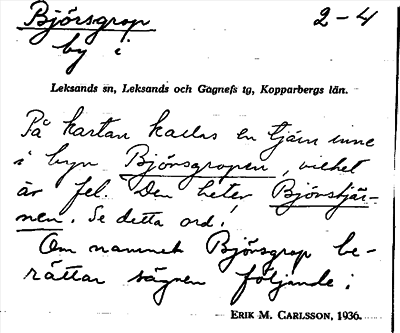 Björsgrop 2-4
by i
Leksands sn, Leksands och Gagnefs tg, Kopparbergs län.
På kartan kallas en tjärn inne
i byn Björsgropen, vilket
är fel. Den heter Björstjär-
nen. Se detta ord!
Om namnet Björsgrop be-
rättar sägnen följande:
ERIK M. CARLSSON, 1936.